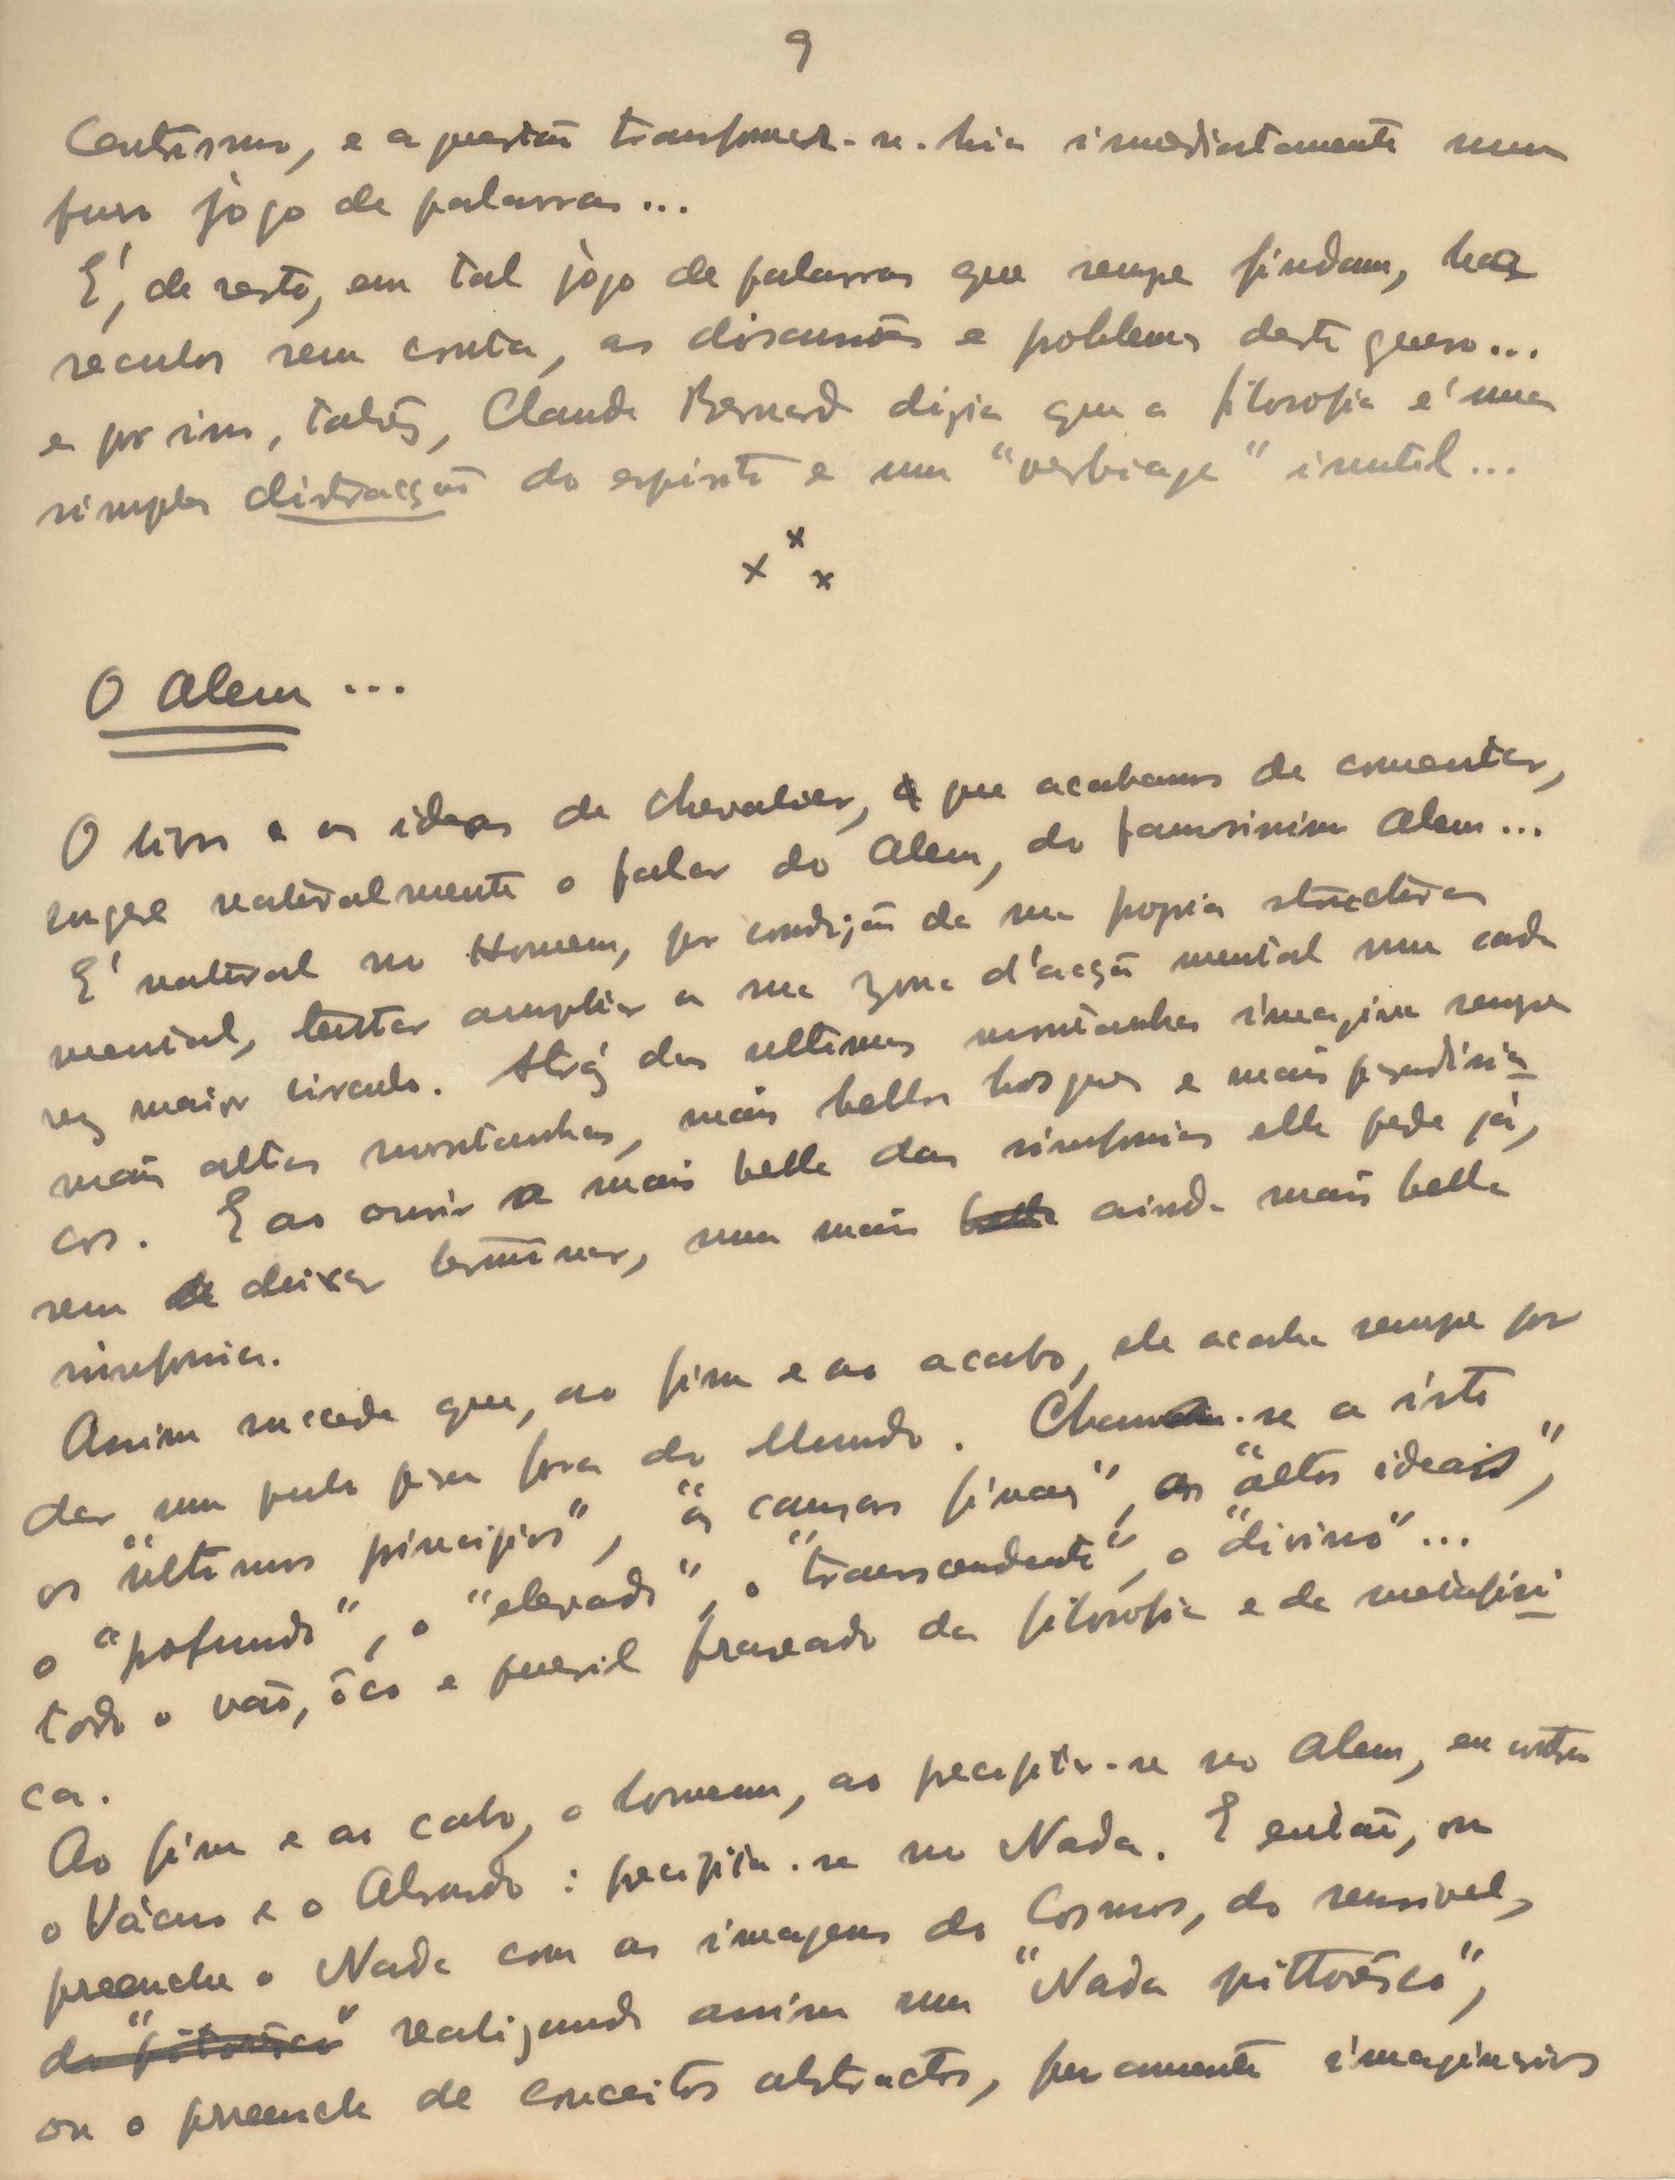 9
Centrismo, e a questão transformar-se-hia immediatamente num
puro jôgo de palavras...
E', de resto, em tal jôgo de palavras que sempre findam, ha
seculos sem conta, as discussões e problemas deste genero...
e por isso, talvez, Claude Bernard dizia que a filosofia é uma
simples distracção do espirito e um "verbiage" inutil...
x x x
O Alem ...
O livro e as ideas de Chevalier, que acabamos de comentar,
sugere naturalmente o falar do Alem, do famosissimo Alem...
E' natural no Homem, por condição da sua propria structura
mental, tentar ampliar a sua zona d'acção mental num cada
vez maior circulo. Atráz das ultimas montanhas imagina sempre
mais altas montanhas, mais bellos bosques e mais paradisia
cos. E ao ouvir a mais bella das sinfonias elle pede já,
sem deixar terminar, uma mais bella ainda mais bella
sinfonia.
Assim succede que, ao fim e ao acabo, ele acaba sempre por
dar um pulo para fora do Mundo. Chama-se a isto
os "ultimos principios", "as causas finaes", os "altos ideais",
o "profundo", o "elevado", o "transcendente", o "divino"...
todo o vão, ôco e pueril fraseado da filosofia e da metafisi
ca.
Ao fim e ao cabo, o homem, ao precipitar-se no Alem, encontra
o Vácuo e o Absurdo: precipita-se no Nada. E então, ou
preenche o Nada com as imagens do Cosmos, do sensivel,
do "pitorêsco" realizando assim um "Nada pittorêsco",
ou o preenche de conceitos abstractos, puramente imaginarios